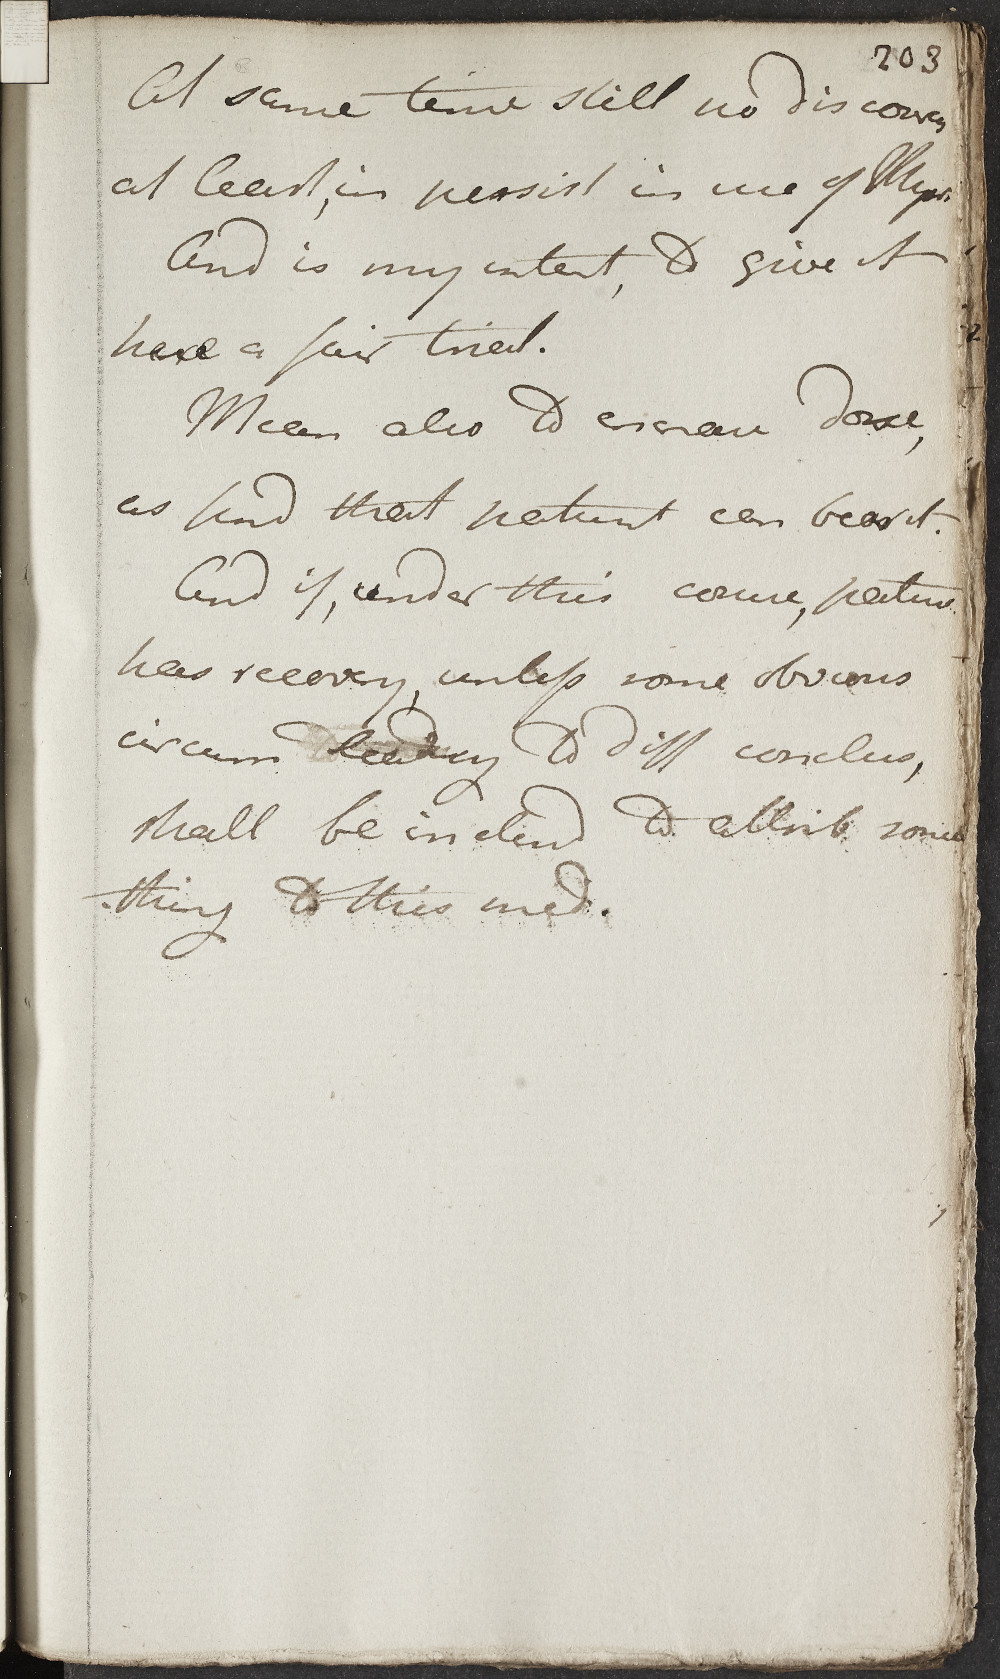 203
At same time still no discourag
at least, in persist in use of
And is my intent, to give it
here a fair trial.
Mean also to increase dose,
as find that patient can bear it.
And if, under this course, patient
has recovery, unless some obvious
circum leading to diff conclus,
shall be inclind to attrib some
thing to this med.